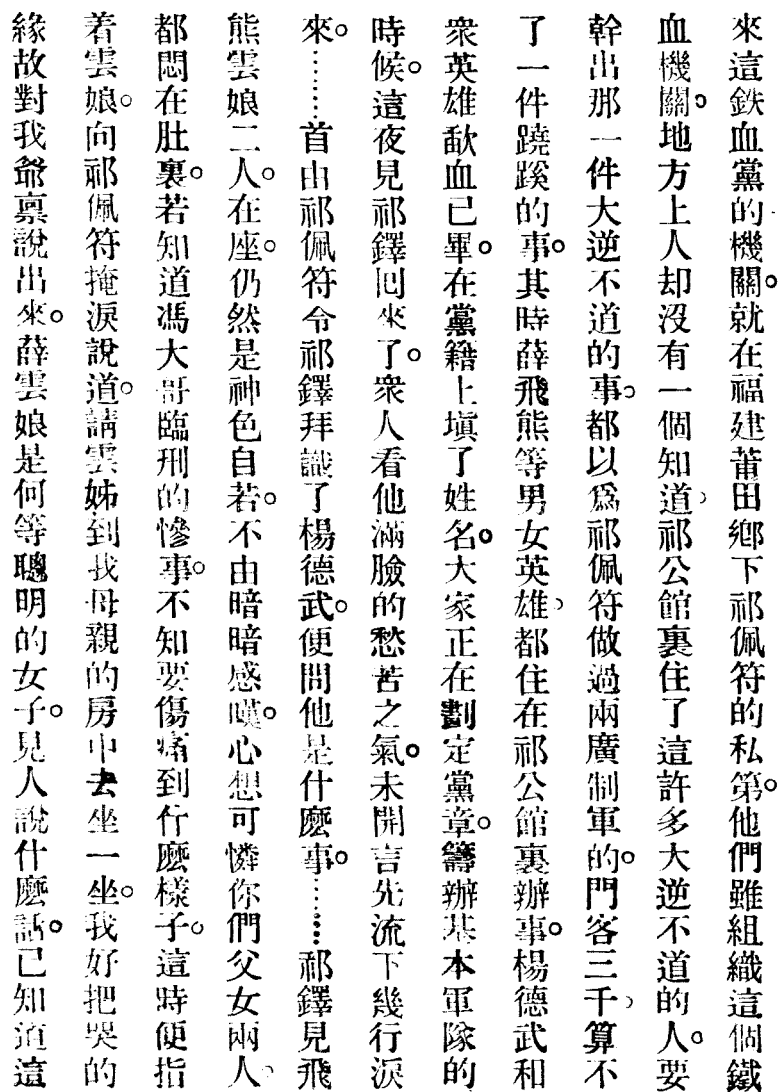 來這鉄血黨的機關。就在福建莆田鄉下祁佩符的私第。他們雖組織這個鐵
血機關。地方上人却沒有一個知道。祁公館裏住了這許多大逆不道的人。要
幹出那一件大逆不道的事。都以爲祁佩符做過兩廣制軍的。門客三千。算不
了一件蹺蹊的事。其時薛飛熊等男女英雄。都住在祁公館裏辦事。楊德武和
衆英雄歃血已畢。在黨籍上塡了姓名。大家正在劃定黨章。籌辦基本軍隊的
時候。這夜見祁鐸回來了。衆人看他滿臉的愁苦之氣。未開言先流下幾行淚
來。……首由祁佩符令祁鐸拜識了楊德武。便問他是什麼事。……祁鐸見飛
熊雲娘二人。在座。仍然是神色自若。不由暗暗感嘆。心想可憐你們父女兩人。
都悶在肚裏。若知道馮大哥臨刑的慘事。不知要傷痛到什麼樣子。這時便指
着雲娘。向祁佩符掩淚說道。請雲姊到我母親的房中去坐一坐。我好把哭的
緣故對我爺禀說出來。薛雲娘是何等聰明的女子。見人說什麼話。已知道這